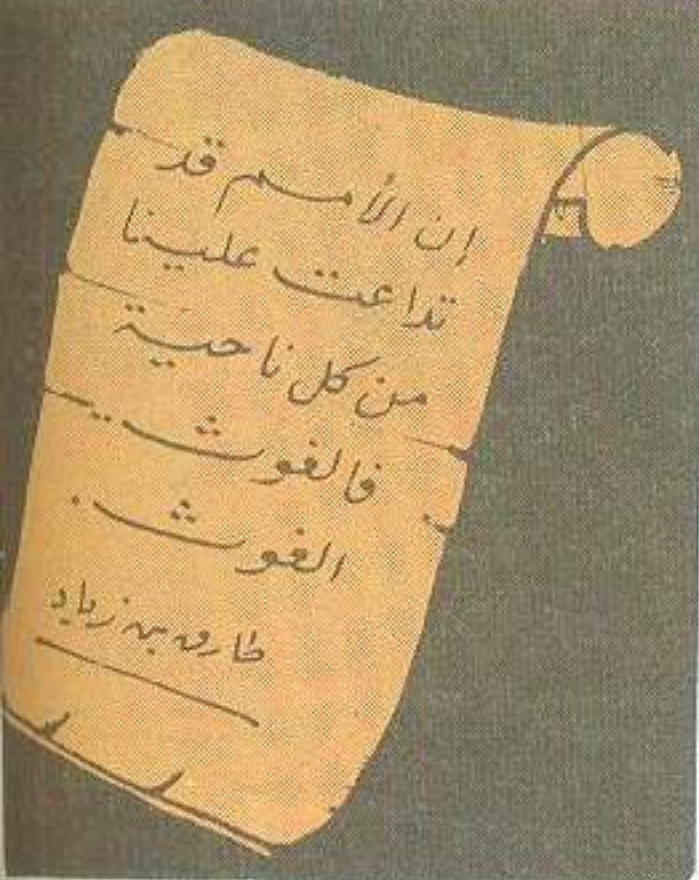 إن الأمم قد
تداعت علينا
من كل ناحية
فالغوث..
الغوث.
طارق بن زياد